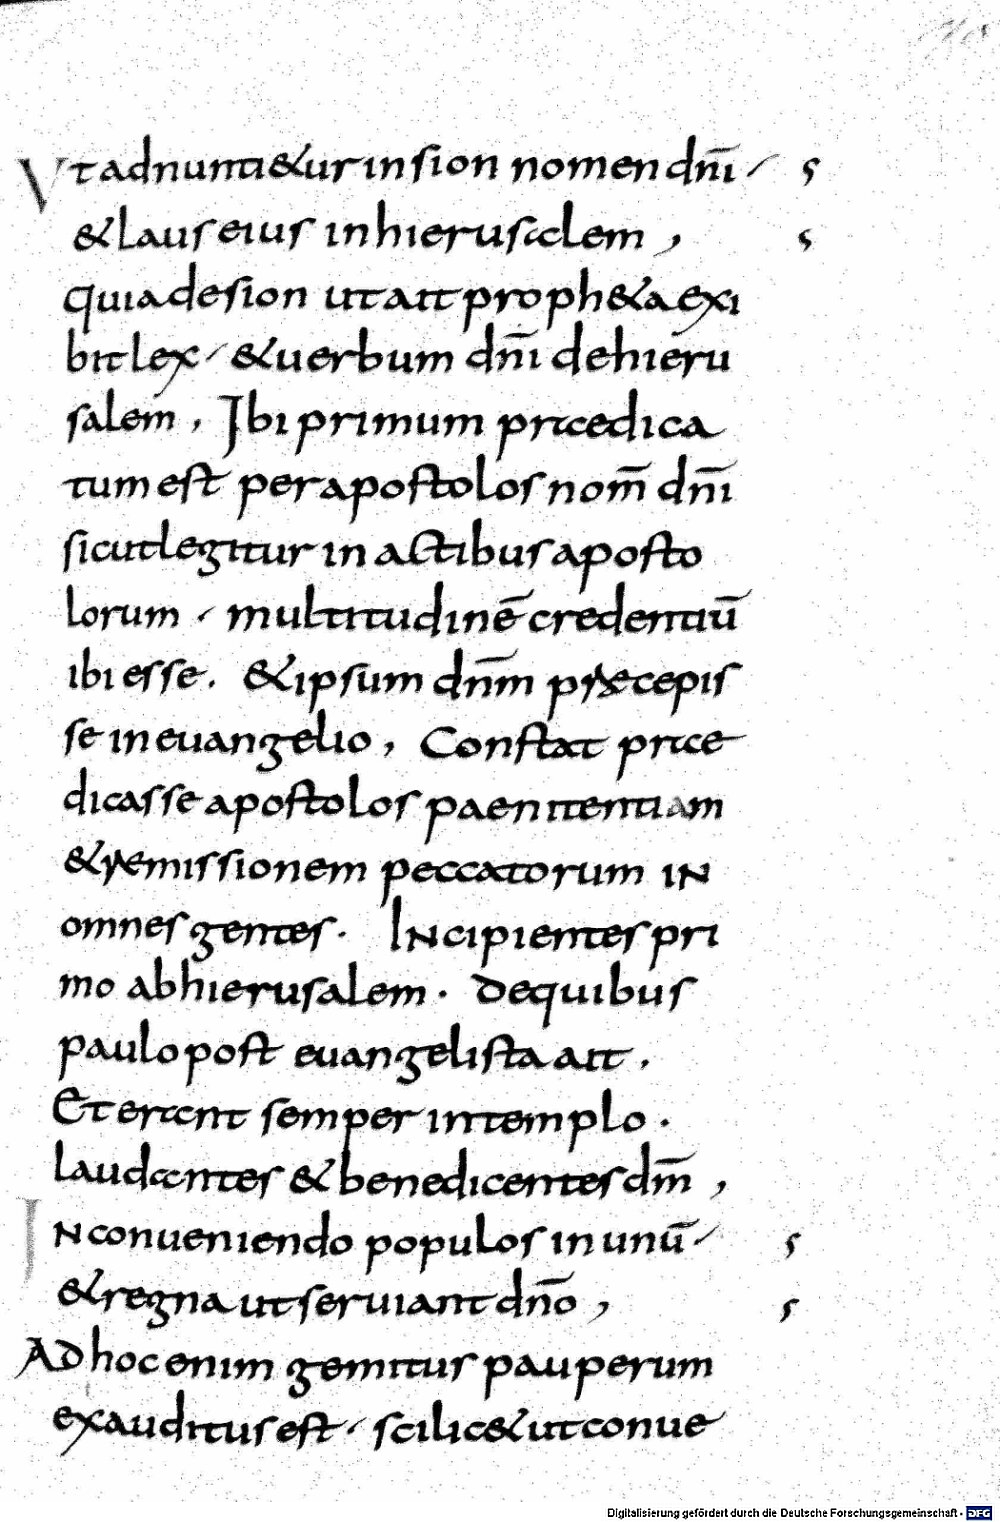 Ut adnunti&ur in sion nomen dnī
& laus eius in hierusalem,
quia de sion ut ait proph&a exi
bit lex & uerbum dnī de hieru
salem, Ibi primum praedica
tum est per apostolos nom̄ dnī
sicut legitur in actibus aposto
lorum multitudinē credentiū
ibi esse. & ipsum dn̄m praecepis
se in euangelio, Constat prae
dicasse apostolos paenitentiam
& remissionem peccatorum in
omnes gentes. Incipientes pri
mo ab hierusalem. De quibus
paulo post euangelista ait.
Et erant semper in templo.
laudantes & benedicentes dm̄,
In conueniendo populos in unū
& regna ut seruiant dn̄o,
Ad hoc enim gemitus pauperum
exauditus est scilic& ut conue
Digitalisierung gefördert durch die Deutsche Forschungsgemeinschaft - DFG